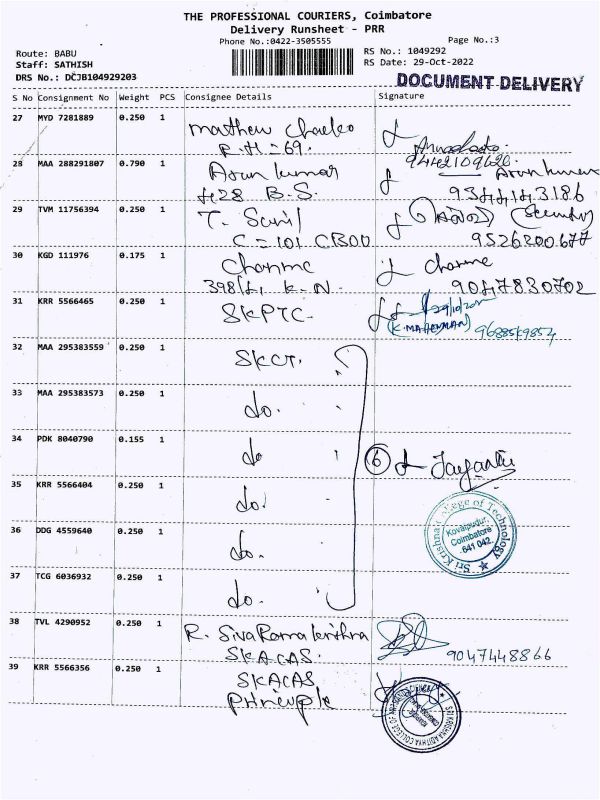 THE PROFESSIONAL COURIERS, Coimbatore
Delivery Runsheet - PRR
Phone No.:0422-3505555
Page No.:3
Route: BABU
Staff: SATHISH
DRS No.: DCJB104929203
RS No.: 1049292
RS Date: 29-Oct-2022
DOCUMENT DELIVERY
S No Consignment No Weight PCS Consignee Details Signature
27 MYD 7281889 0.250 1
9442109620
28 MAA 288291807 0.790 1 Arun kumar Arun kumar
428 B.S. 9344143186
29 TVM 11756394 0.250 1 T. Sunil
C=101 CBOO 9526200677
30 KGD 111976 0.175 1 Charme charme
398/ K.N. 9047830702
31 KRR 5566465 0.250 1 SKPTC.
32 MAA 295383559 0.250 1 SKCT.
33 MAA 295383573 0.250 1 do.
34 PDK 8040790 0.155 1 do 6
35 KRR 5566404 0.250 1 do.
36 DDG 4559640 0.250 1 do.
37 TCG 6036932 0.250 1 do.
Sri Krishna College of Technology
Kovaipudur,
Coimbatore
641 042.
38 TVL 4290952 0.250 1 R. SivaRama krithra
SKACAS. 9047448866
39 KRR 5566356 0.250 1 SKACAS
principle